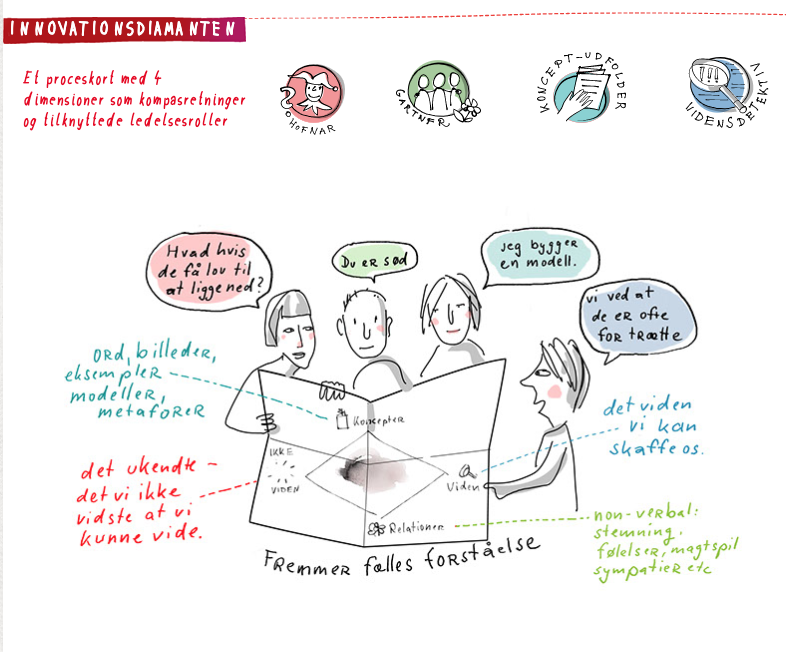 INNOVATIONSDIAMANTEN
Et proceskort med 4
dimensioner som kompasretninger
og tilknyttede ledelsesroller
HOFNAR
GARTNER
KONCEPT-UDFOLDER
VIDENSDETEKTIV
Hvad hvis
de få lov til
at ligge ned?
Du er sød
jeg bygger
en modell.
vi ved at
de er ofte
for trætte
ord, billeder,
eksempler
modeller,
metaforer
Koncepter
det viden
vi kan
skaffe os.
IKKE
VIDEN
Viden
det ukendte -
det vi ikke
vidste at vi
kunne vide.
Relationer
non-verbal:
stemning,
følelser, magtspil
sympatier etc
Fremmer fælles forståelse